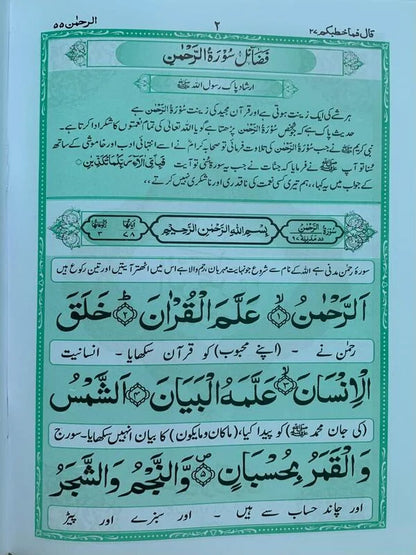 قال فما خطبکم ۲۷
۲
الرحمٰن ۵۵
فضائل سُوْرَۃُ الرَّحْمٰن
ارشاد پاک رسول اللہ ﷺ
ہر شے کی ایک زینت ہوتی ہے اور قرآن مجید کی زینت سُوْرَۃُ الرَّحْمٰن ہے
حدیث پاک ہے کہ جو شخص سُوْرَۃُ الرَّحْمٰن پڑھتا ہے گویا اللہ تعالی کی تمام نعمتوں کا شکر ادا کرتا ہے۔
نبی کریم ﷺ نے جب سُوْرَۃُ الرَّحْمٰن کی تلاوت فرمائی تو صحابہ کرام نے اسے انتہائی ادب اور خاموشی کے ساتھ
سنا تو آپ ﷺ نے فرمایا کہ جنات نے جب یہ سورۃ سُنی تو آیت فَبِاَیِّ اٰلَآءِ رَبِّکُمَا تُکَذِّبٰنِ
کے جواب میں یہ کہا،، ہم تیری کسی نعمت کی ناقدری اور ناشکری نہیں کرتے،،
سُوْرَۃُ الرَّحْمٰنِ
بِسْمِ اللّٰهِ الرَّحْمٰنِ الرَّحِیْمِ
اٰیاتہا ۷۸
رکوعہا ۳
سورۂ رحمٰن مدنی ہے اللہ کے نام سے شروع جو نہایت مہربان رحم والا ہے اس میں اٹھتر آیتیں اور تین رکوع ہیں
اَلرَّحْمٰنُ ۙ۝۱ عَلَّمَ الْقُرْاٰنَ ؕ۝۲ خَلَقَ
رحمٰن نے - (اپنے محبوب) کو قرآن سکھایا - انسانیت
الْاِنْسَانَ ۙ۝۳ عَلَّمَهُ الْبَیَانَ ۝۴ اَلشَّمْسُ
(کی جان محمد ﷺ) کو پیدا کیا، (ماکان و مایکون) کا بیان انہیں سکھایا - سورج
وَ الْقَمَرُ بِحُسْبَانٍ ۪۝۵ وَّ النَّجْمُ وَ الشَّجَرُ
اور چاند حساب سے ہیں - اور سبزے اور پیڑ